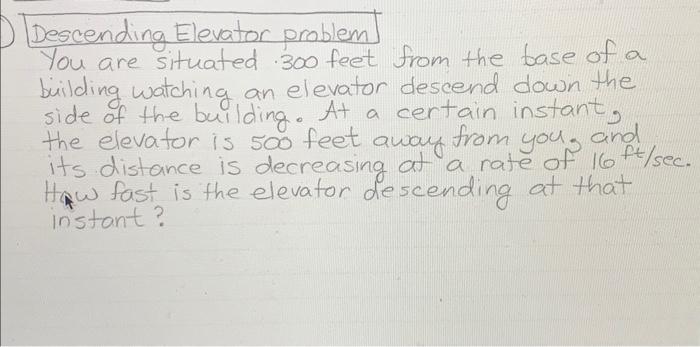 Descending Elevator problem
You are situated 300 feet from the base of a
building watching an elevator descend down the
side of the building. At a certain instant,
the elevator is 500 feet away from you, and
its distance is decreasing at a rate of 16 ft/sec.
How fast is the elevator descending at that
instant?